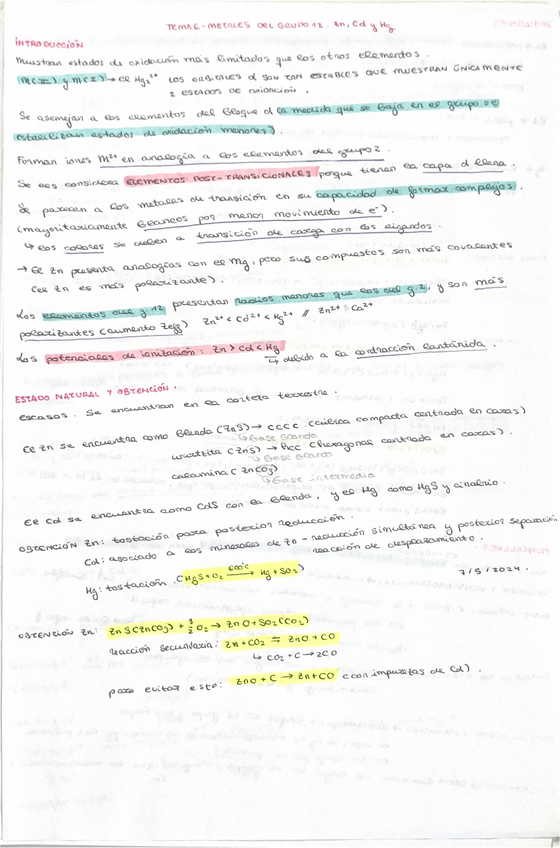 TEMA 6 - METALES DEL GRUPO 12. Zn, Cd y Hg
INTRODUCCIÓN
Muestran estados de oxidación más limitados que los otros elementos.
M(II) y M(I) → el Hg₂²⁺ LOS ORBITALES d SON TAN ESTABLES QUE MUESTRAN ÚNICAMENTE
2 ESTADOS DE OXIDACIÓN.
Se asemejan a los elementos del bloque d (a medida que se baja en el grupo se
estabilizan estados de oxidación menores).
Forman iones M²⁺ en analogía a los elementos del grupo 2.
Se les considera ELEMENTOS POST-TRANSICIONALES porque tienen la capa d llena.
Se parecen a los metales de transición en su capacidad de formar complejos.
(mayoritariamente blancos por menor movimiento de e⁻).
↳ los colores se deben a transición de carga con los ligandos.
→ El Zn presenta analogías con el Mg, pero sus compuestos son más covalentes
(el Zn es más polarizante).
Los elementos del g.12 presentan radios menores que los del g.2, y son más
polarizantes (aumento Zef) Zn²⁺ < Cd²⁺ < Hg²⁺ // Zn²⁺ Ca²⁺
Los potenciales de ionización: Zn > Cd < Hg
↳ debido a la contracción lantánida.
ESTADO NATURAL Y OBTENCIÓN.
Escasos. Se encuentran en la corteza terrestre.
El Zn se encuentra como Blenda (ZnS) → cccc (cúbica compacta centrada en caras)
↳ Base blanda
wurtzita (ZnS) → hcc (hexagonal centrada en caras).
↳ Base blanda
calamina (ZnCO₃)
↳ Base intermedia
El Cd se encuentra como CdS con la blenda, y el Hg como HgS y cinabrio.
OBTENCIÓN Zn: tostación para posterior reducción.
Cd: asociado a los minerales de Zn - reducción simultánea y posterior separación
reacción de desplazamiento.
Hg: tostación. (HgS + O₂ 600°C → Hg + SO₂)
7/5/2024.
OBTENCIÓN Zn: ZnS(ZnCO₃) + 3/2 O₂ → ZnO + SO₂(CO₂)
reacción secundaria: Zn + CO₂ ⇌ ZnO + CO
↳ CO₂ + C → 2CO
para evitar esto: ZnO + C → Zn + CO (con impurezas de Cd).